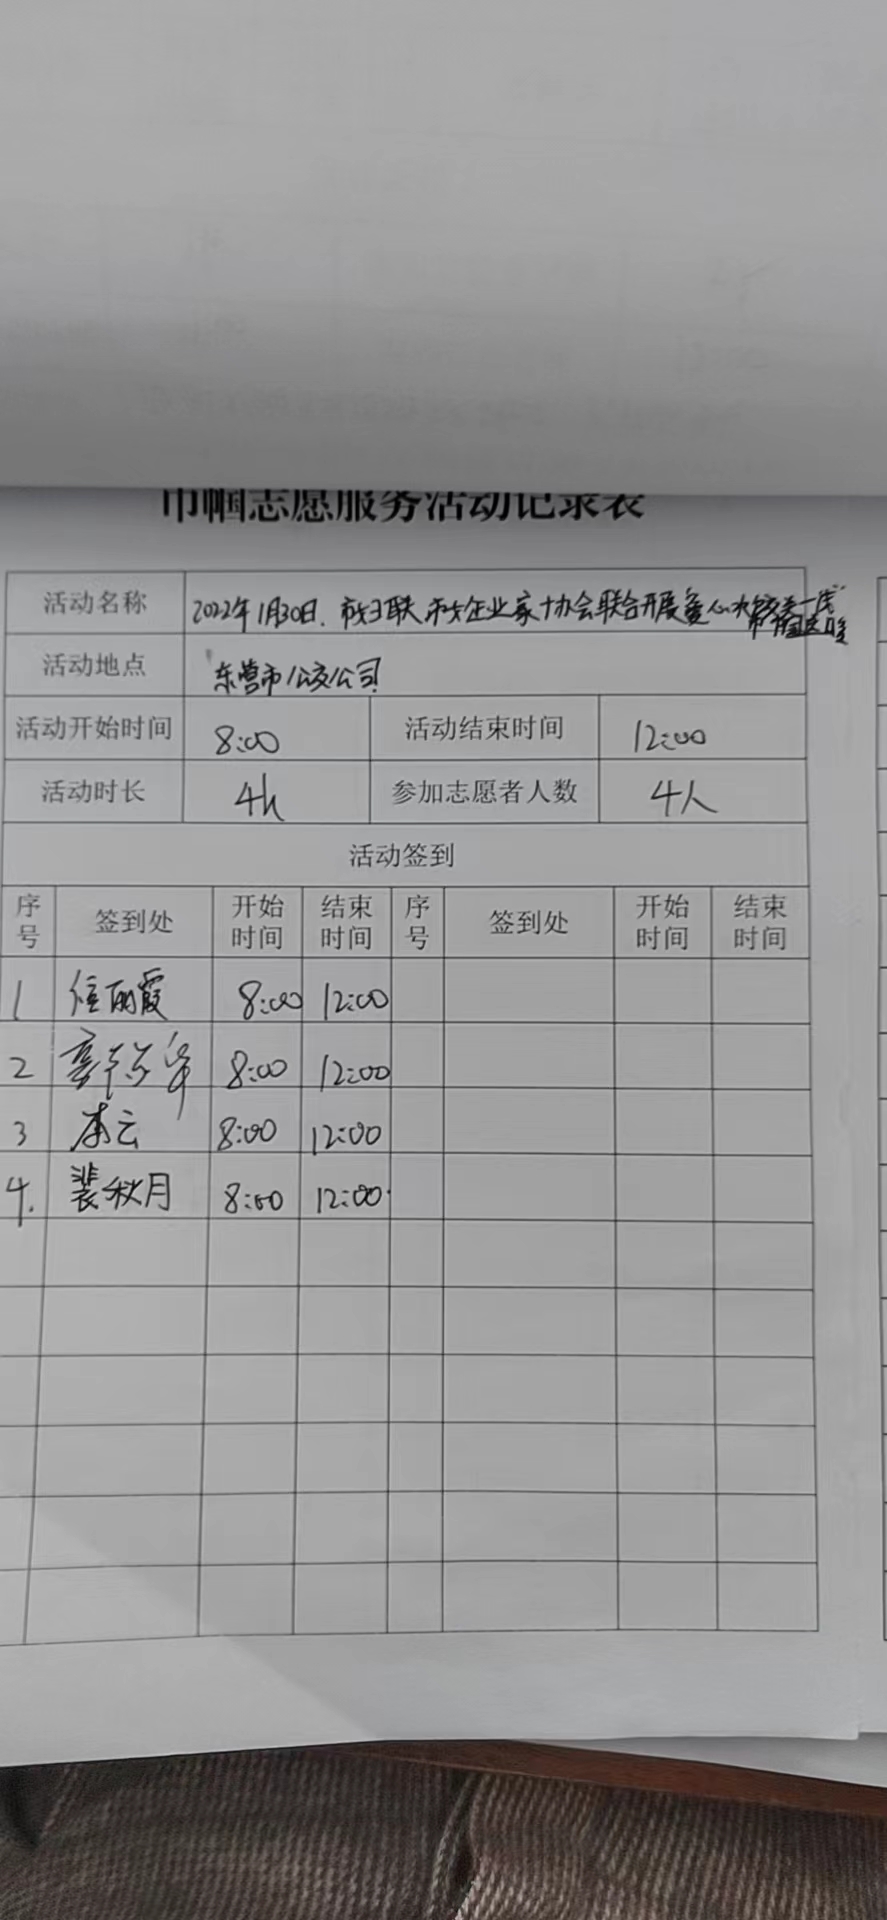 巾帼志愿服务活动记录表
活动名称 2022年1月30日.市妇联 市女企业家协会联合开展爱心水饺送一线
巾帼送暖
活动地点 东营市公交公司
活动开始时间 8:00 活动结束时间 12:00
活动时长 4h 参加志愿者人数 4人
活动签到
序号 签到处 开始时间 结束时间 序号 签到处 开始时间 结束时间
1 任丽霞 8:00 12:00
2 8:00 12:00
3 8:00 12:00
4. 裴秋月 8:00 12:00